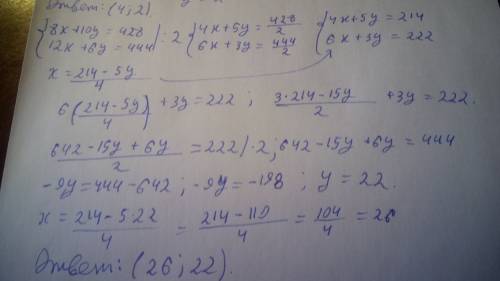 Ответ: (4; 2)
{8x+10y=428 {4x+5y=428/2 {4x+5y=214
{12x+6y=444 :2 {6x+3y=444/2 {6x+3y=222
x = (214-5y)/4
6((214-5y)/4) +3y=222 ; (3·214-15y)/2 +3y=222.
(642-15y+6y)/2 =222/·2; 642-15y+6y=444
-9y=444-642; -9y=-198; y=22.
x = (214-5·22)/4 = (214-110)/4 = 104/4 = 26
Ответ: (26; 22).